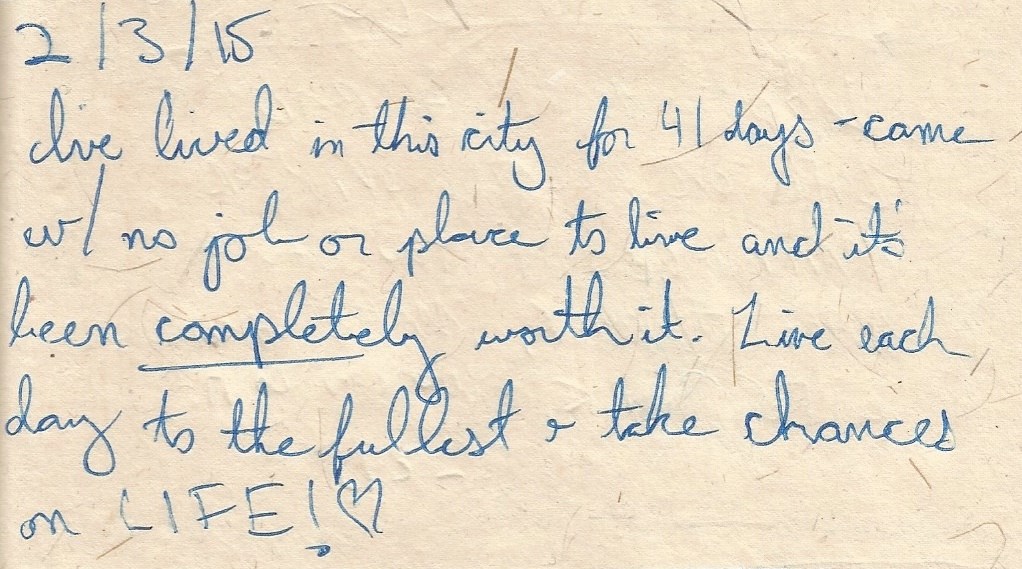 2/3/15
I've lived in this city for 41 days - came
w/ no job or place to live and it's
been completely worth it. Live each
day to the fullest & take chances
on LIFE! ♡